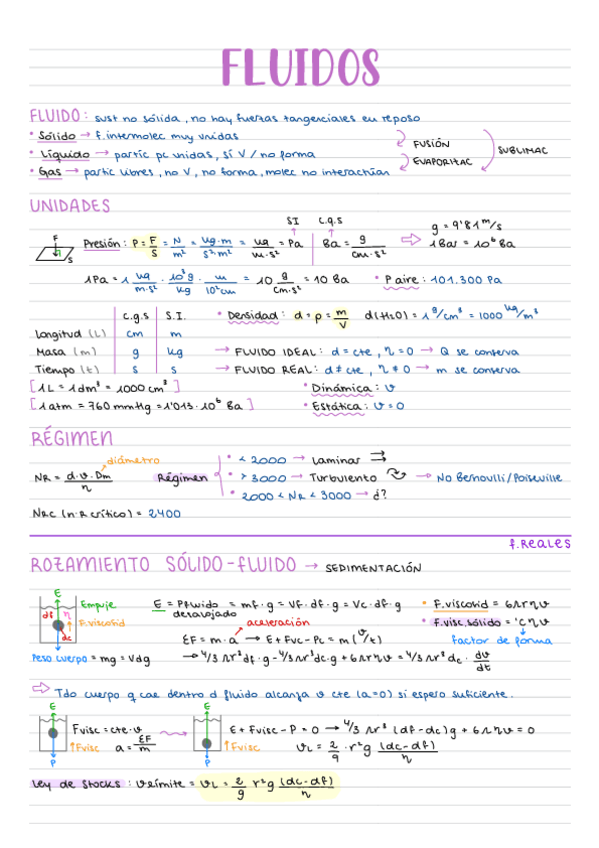 FLUIDOS
FLUIDO: sust no sólida, no hay fuerzas tangenciales en reposo
* Sólido → f. intermolec muy unidas
* Líquido → partíc pc unidas, sí V / no forma
* Gas → partic libres, no V, no forma, molec no interactúan
FUSIÓN
EVAPORITAC
SUBLIMAC
UNIDADES
SI C.g.s
F
S
Presión: P = F/S = N/m² = kg·m/s²·m² = kg/m·s² = Pa | Ba = g/cm·s² ⇨ g = 9'81 m/s
1 Bar = 10⁶ Ba
1Pa = 1 kg/m·s² · 10³g/kg · m/10²cm = 10 g/cm·s² = 10 Ba * P aire: 101.300 Pa
c.g.s S.I.
Longitud (L) cm m
Masa (m) g kg
Tiempo (t) s s
* Densidad: d = ρ = m/V d(H₂O) = 1 g/cm³ = 1000 kg/m³
→ FLUIDO IDEAL: d = cte, η = 0 → Q se conserva
→ FLUIDO REAL: d ≠ cte, η ≠ 0 → m se conserva
[1L = 1dm³ = 1000 cm³]
* Dinámica: v
[1 atm = 760 mmHg = 1'013·10⁶ Ba]
* Estática: v = 0
RÉGIMEN
diámetro
NR = d·v·Dm/η
Régimen
* < 2000 → Laminar
* > 3000 → Turbulento → No Bernoulli/Poiseuille
* 2000 < NR < 3000 → d?
NRc (n·R crítico) = 2400
f. REALES
ROZAMIENTO SÓLIDO-FLUIDO → SEDIMENTACIÓN
E
df η
dc
Empuje
F.viscosid
Peso cuerpo = mg = Vdg
E = Pfluido desalojado = mf·g = Vf·df·g = Vc·df·g
* F.viscosid = 6πrηv
* F.visc.sólido = 'Cηv
factor de forma
aceleración
ΣF = m·a → E + Fvc - Pc = m (v/t)
→ 4/3 πr³ df·g - 4/3 πr³ dc·g + 6πrηv = 4/3 πr³ dc · dv/dt
⇨ Tdo cuerpo q cae dentro d fluido alcanza v cte (a=0) si espero suficiente.
E
P
Fvisc = cte·v
↑Fvisc a = ΣF/m
E
P
↑Fvisc
E + Fvisc - P = 0 → 4/3 πr³ (df-dc)g + 6πrηv = 0
vL = 2/9 · r²g (dc-df)/η
Ley de Stocks: v límite = vL = 2/9 r²g (dc-df)/η